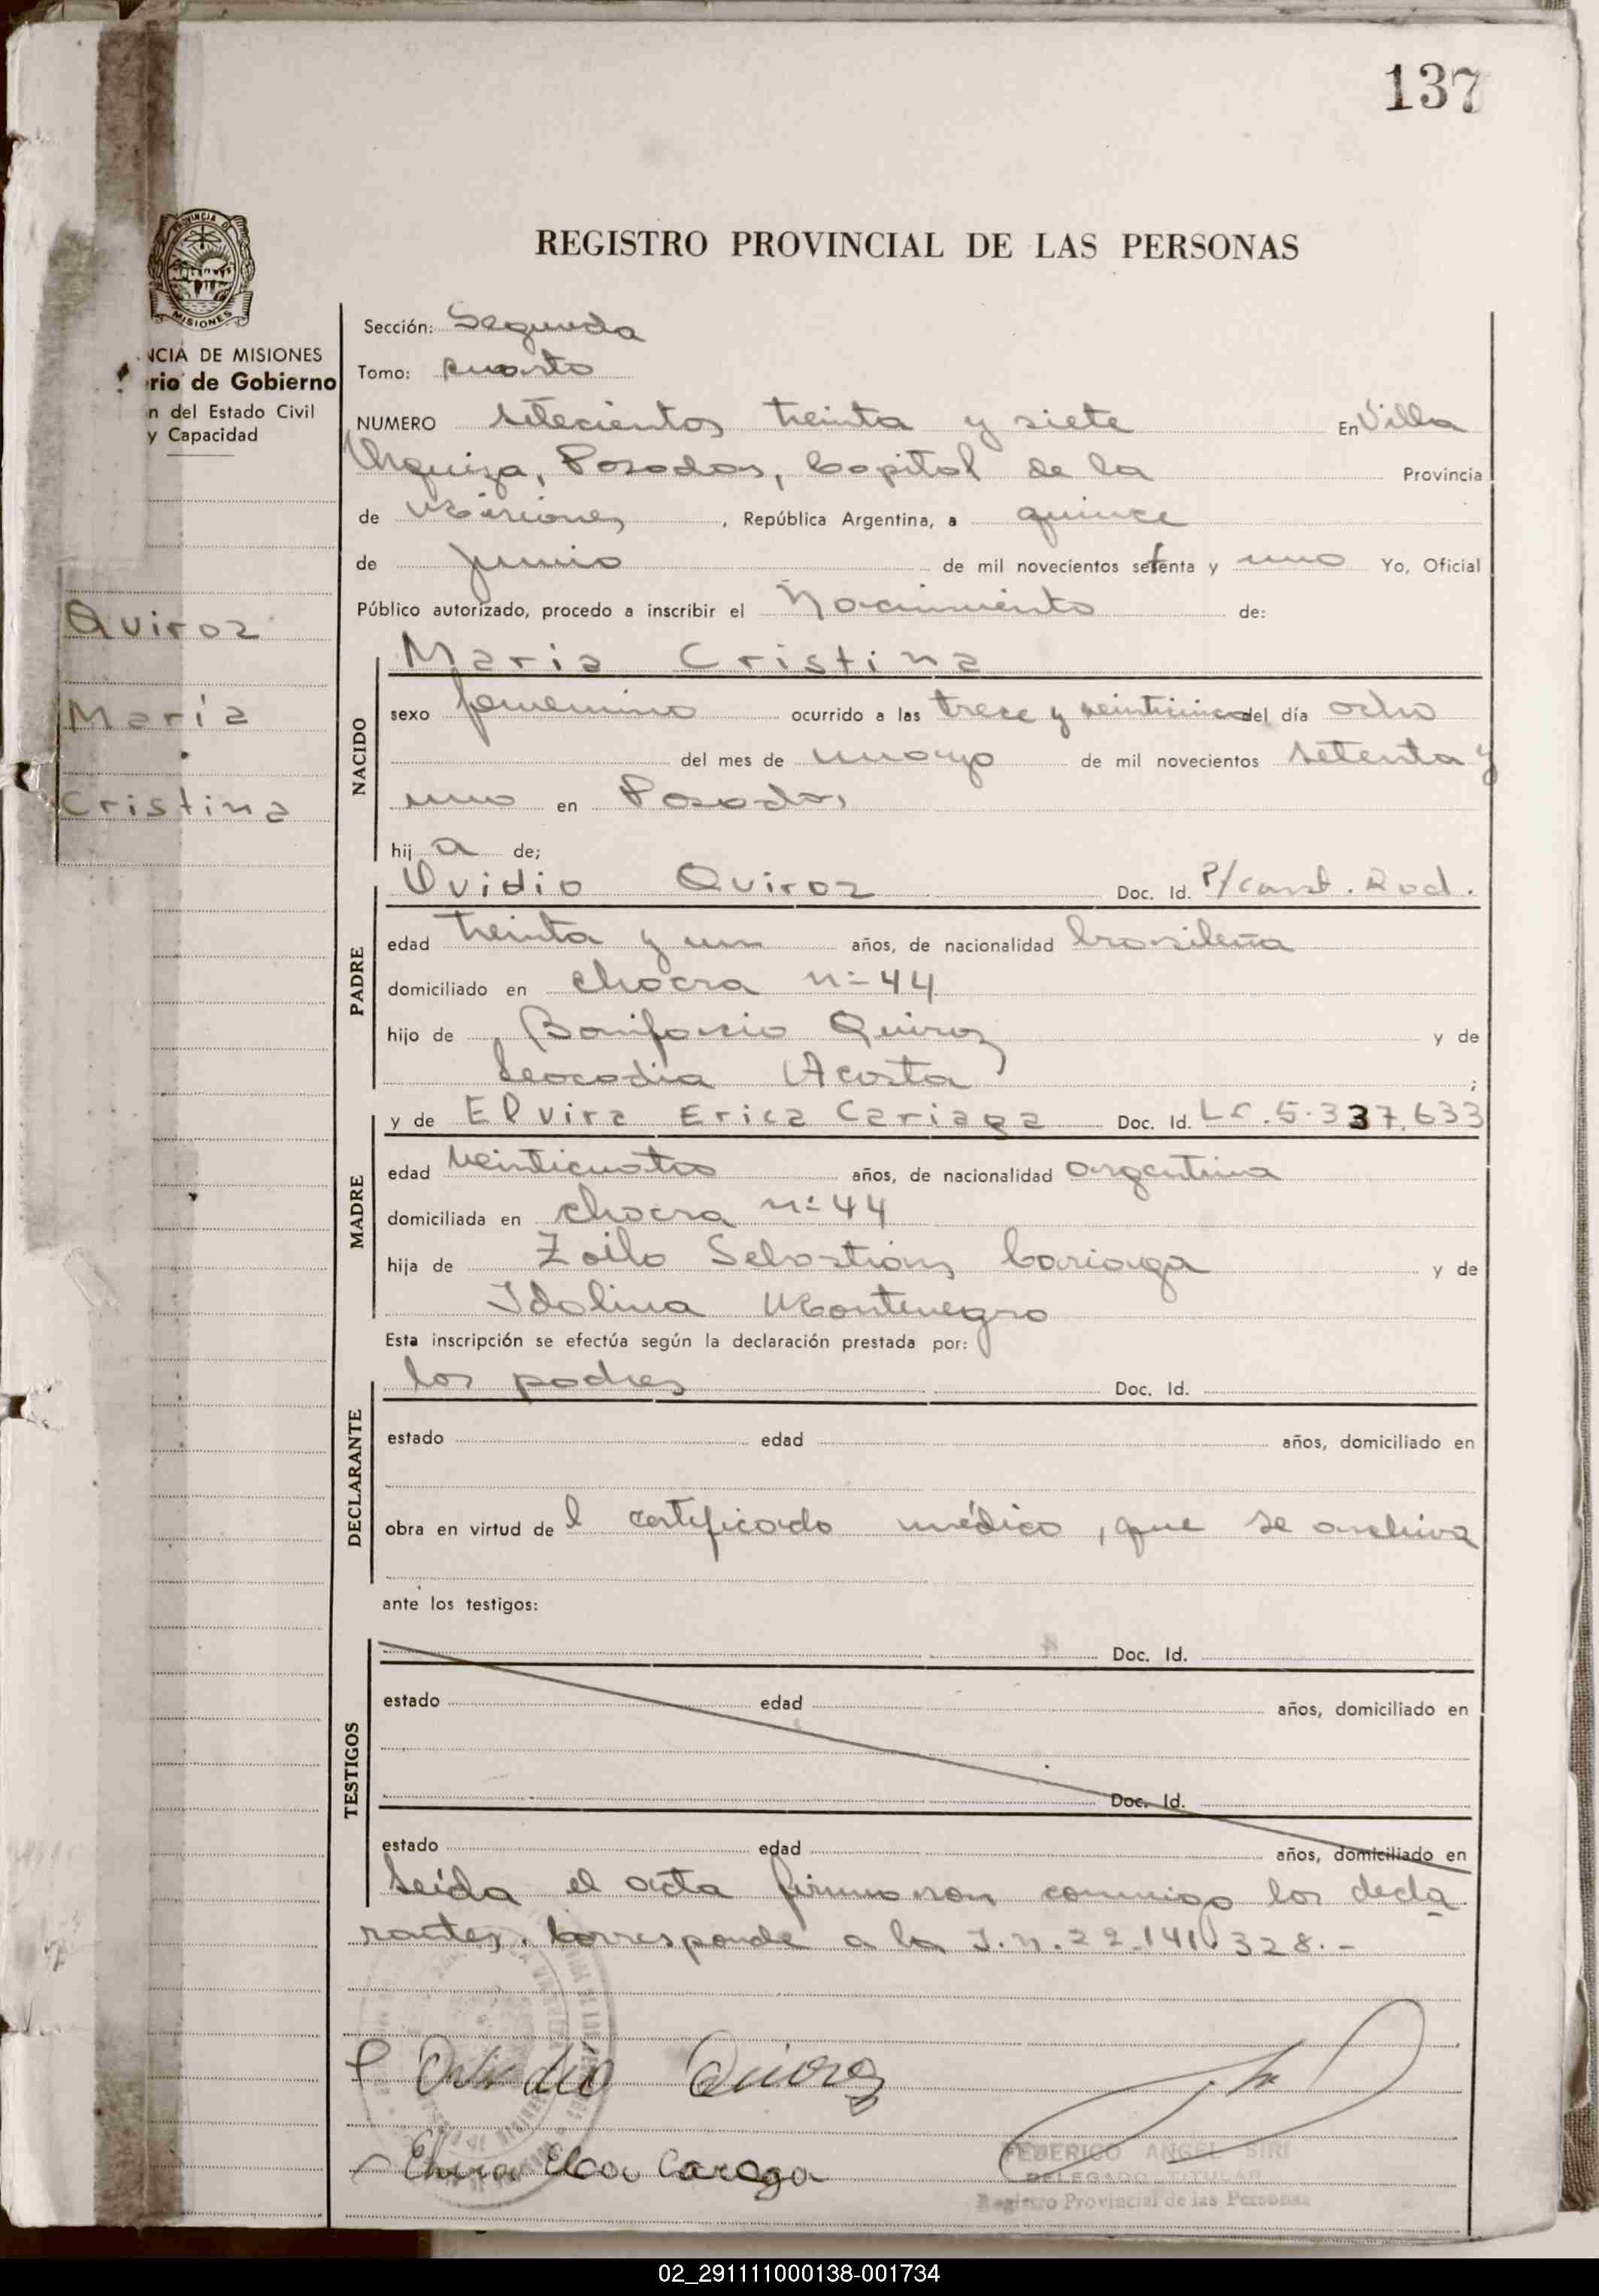 137
PROVINCIA DE
MISIONES
REGISTRO PROVINCIAL DE LAS PERSONAS
NCIA DE MISIONES
rio de Gobierno
n del Estado Civil
y Capacidad
Quiroz
María
Cristina
Sección: Segunda
Tomo: cuarto
NUMERO setecientos treinta y siete En Villa
Urquiza, Posadas, Capital de la Provincia
de Misiones, República Argentina, a quince
de junio de mil novecientos setenta y uno Yo, Oficial
Público autorizado, procedo a inscribir el Nacimiento de:
NACIDO
Maria Cristina
sexo femenino ocurrido a las trece y veinticinco del día ocho
del mes de mayo de mil novecientos setenta y
uno en Posadas
hij a de;
PADRE
Ovidio Quiroz Doc. Id. P/Const. Rad.
edad treinta y un años, de nacionalidad brasileña
domiciliado en chacra n= 44
hijo de Bonifacio Quiroz y de
Leocadia Acosta ;
MADRE
y de Elvira Erica Cariaga Doc. Id. L.C. 5.337.633
edad veinticuatro años, de nacionalidad argentina
domiciliada en chacra n= 44
hija de Zoilo Sebastian Cariaga y de
Idolina Montenegro
Esta inscripción se efectúa según la declaración prestada por:
DECLARANTE
los padres Doc. Id.
estado edad años, domiciliado en
obra en virtud de l certificado médico, que se archiva
ante los testigos:
TESTIGOS
Doc. Id.
estado edad años, domiciliado en
Doc. Id.
estado edad años, domiciliado en
Leída el acta firmaron conmigo los decla
rantes. Corresponde a la I.n. 22.141.328.-
Ovidio Quiroz
Elvira Cariaga
FEDERICO ANGEL SIRI
DELEGADO TITULAR
Registro Provincial de las Personas
02_291111000138-001734